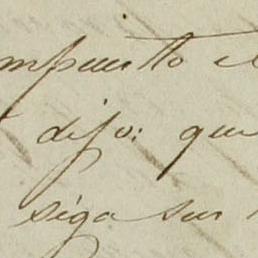 mpuesto e
dijo: que
siga sus